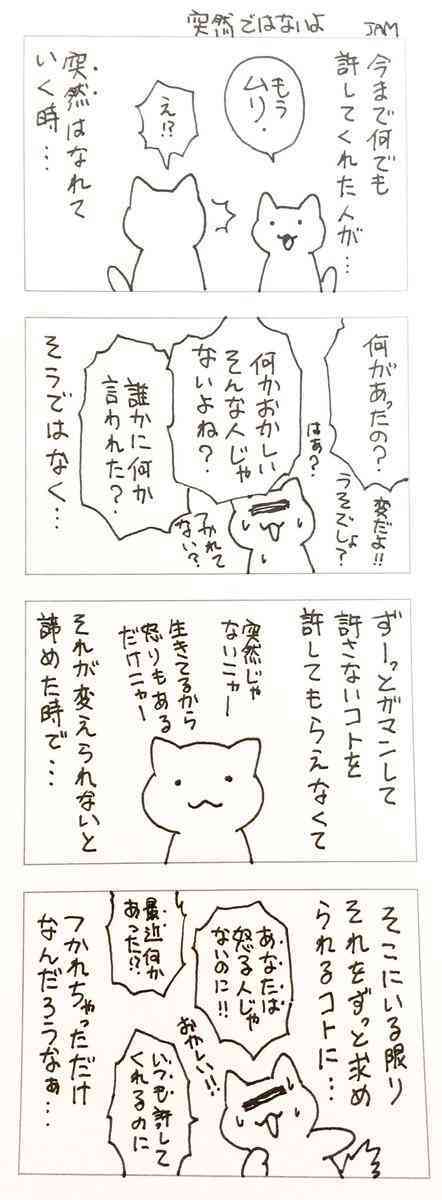 突然ではないよ
JAM
今まで何でも
許してくれた人が…
もう
ムリ.
え!?
突然はなれて
いく時…
何があったの?
変だよ!!
うそでしょ?
はぁ?
何かおかしい
そんな人じゃ
ないよね?
つかれて
ない?
誰かに何か
言われた?
そうではなく…
ずーっとガマンして
許さないコトを
許してもらえなくて
突然じゃ
ないニャー
生きてるから
怒りもある
だけニャー
それが変えられないと
諦めた時で…
そこにいる限り
それをずっと求め
られるコトに…
あなたは
怒る人じゃ
ないのに!!
最近何か
あった!?
おかしい!!
いつも許して
くれるのに
つかれちゃっただけ
なんだろうなぁ…